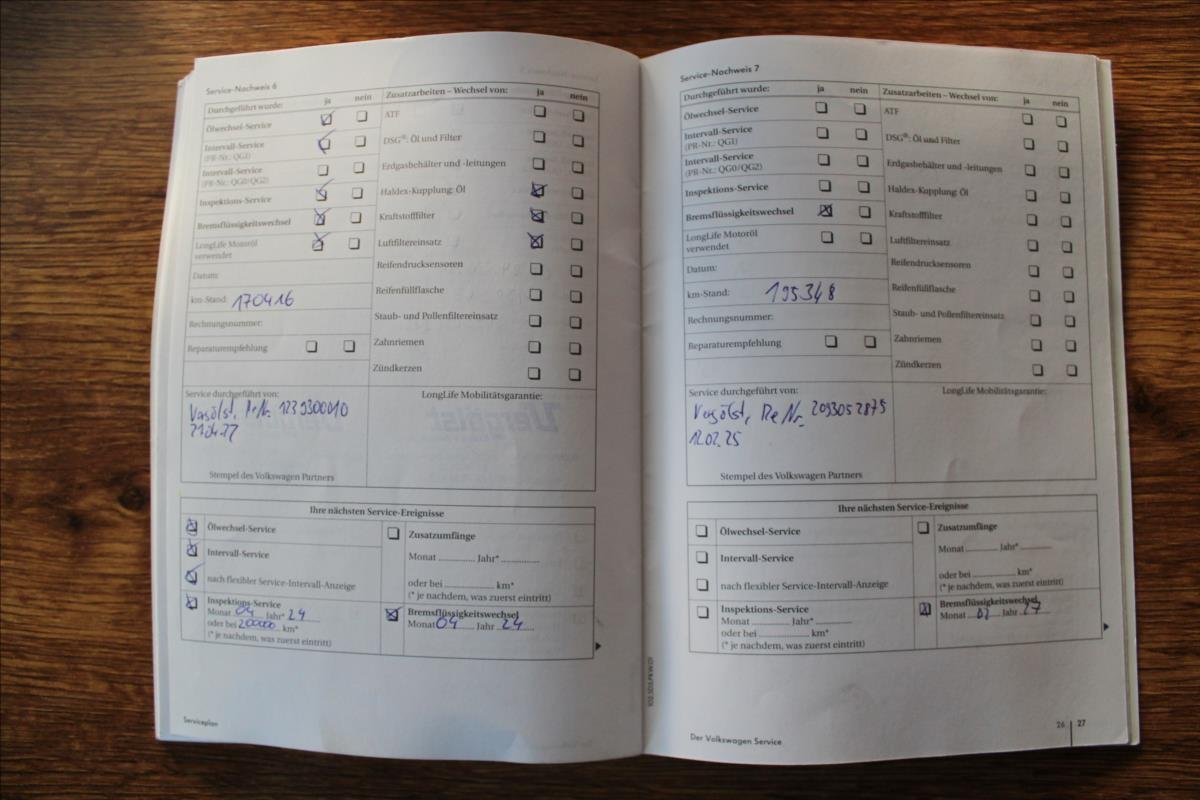 Service-Nachweis 6
Durchgeführt wurde: ja nein
Ölwechsel-Service
Intervall-Service
(PR-Nr.: QG1)
Intervall-Service
(PR-Nr.: QG0/QG2)
Inspektions-Service
Bremsflüssigkeitswechsel
LongLife Motoröl
verwendet
Datum:
km-Stand: 170416
Rechnungsnummer:
Reparaturempfehlung
Zusatzarbeiten – Wechsel von: ja nein
ATF
DSG®: Öl und Filter
Erdgasbehälter und -leitungen
Haldex-Kupplung: Öl
Kraftstofffilter
Luftfiltereinsatz
Reifendrucksensoren
Reifenfüllflasche
Staub- und Pollenfiltereinsatz
Zahnriemen
Zündkerzen
Service durchgeführt von:
Vergölst, Re Nr. 1239300010
21.04.22
Stempel des Volkswagen Partners
LongLife Mobilitätsgarantie:
Ihre nächsten Service-Ereignisse
Ölwechsel-Service
Intervall-Service
nach flexibler Service-Intervall-Anzeige
Inspektions-Service
Monat 04 Jahr* 24
oder bei 200000 km*
(* je nachdem, was zuerst eintritt)
Zusatzumfänge
Monat ............ Jahr* ............
oder bei ................ km*
(* je nachdem, was zuerst eintritt)
Bremsflüssigkeitswechsel
Monat 04 Jahr 24
Serviceplan
Service-Nachweis 7
Durchgeführt wurde: ja nein
Ölwechsel-Service
Intervall-Service
(PR-Nr.: QG1)
Intervall-Service
(PR-Nr.: QG0/QG2)
Inspektions-Service
Bremsflüssigkeitswechsel
LongLife Motoröl
verwendet
Datum:
km-Stand: 195348
Rechnungsnummer:
Reparaturempfehlung
Zusatzarbeiten – Wechsel von: ja nein
ATF
DSG®: Öl und Filter
Erdgasbehälter und -leitungen
Haldex-Kupplung: Öl
Kraftstofffilter
Luftfiltereinsatz
Reifendrucksensoren
Reifenfüllflasche
Staub- und Pollenfiltereinsatz
Zahnriemen
Zündkerzen
Service durchgeführt von:
Vergölst, Re Nr. 2093052875
12.02.25
Stempel des Volkswagen Partners
LongLife Mobilitätsgarantie:
Ihre nächsten Service-Ereignisse
Ölwechsel-Service
Intervall-Service
nach flexibler Service-Intervall-Anzeige
Inspektions-Service
Monat ............ Jahr* ............
oder bei ................ km*
(* je nachdem, was zuerst eintritt)
Zusatzumfänge
Monat ............ Jahr* ............
oder bei ................ km*
(* je nachdem, was zuerst eintritt)
Bremsflüssigkeitswechsel
Monat 02 Jahr 27
Der Volkswagen Service
26 | 27